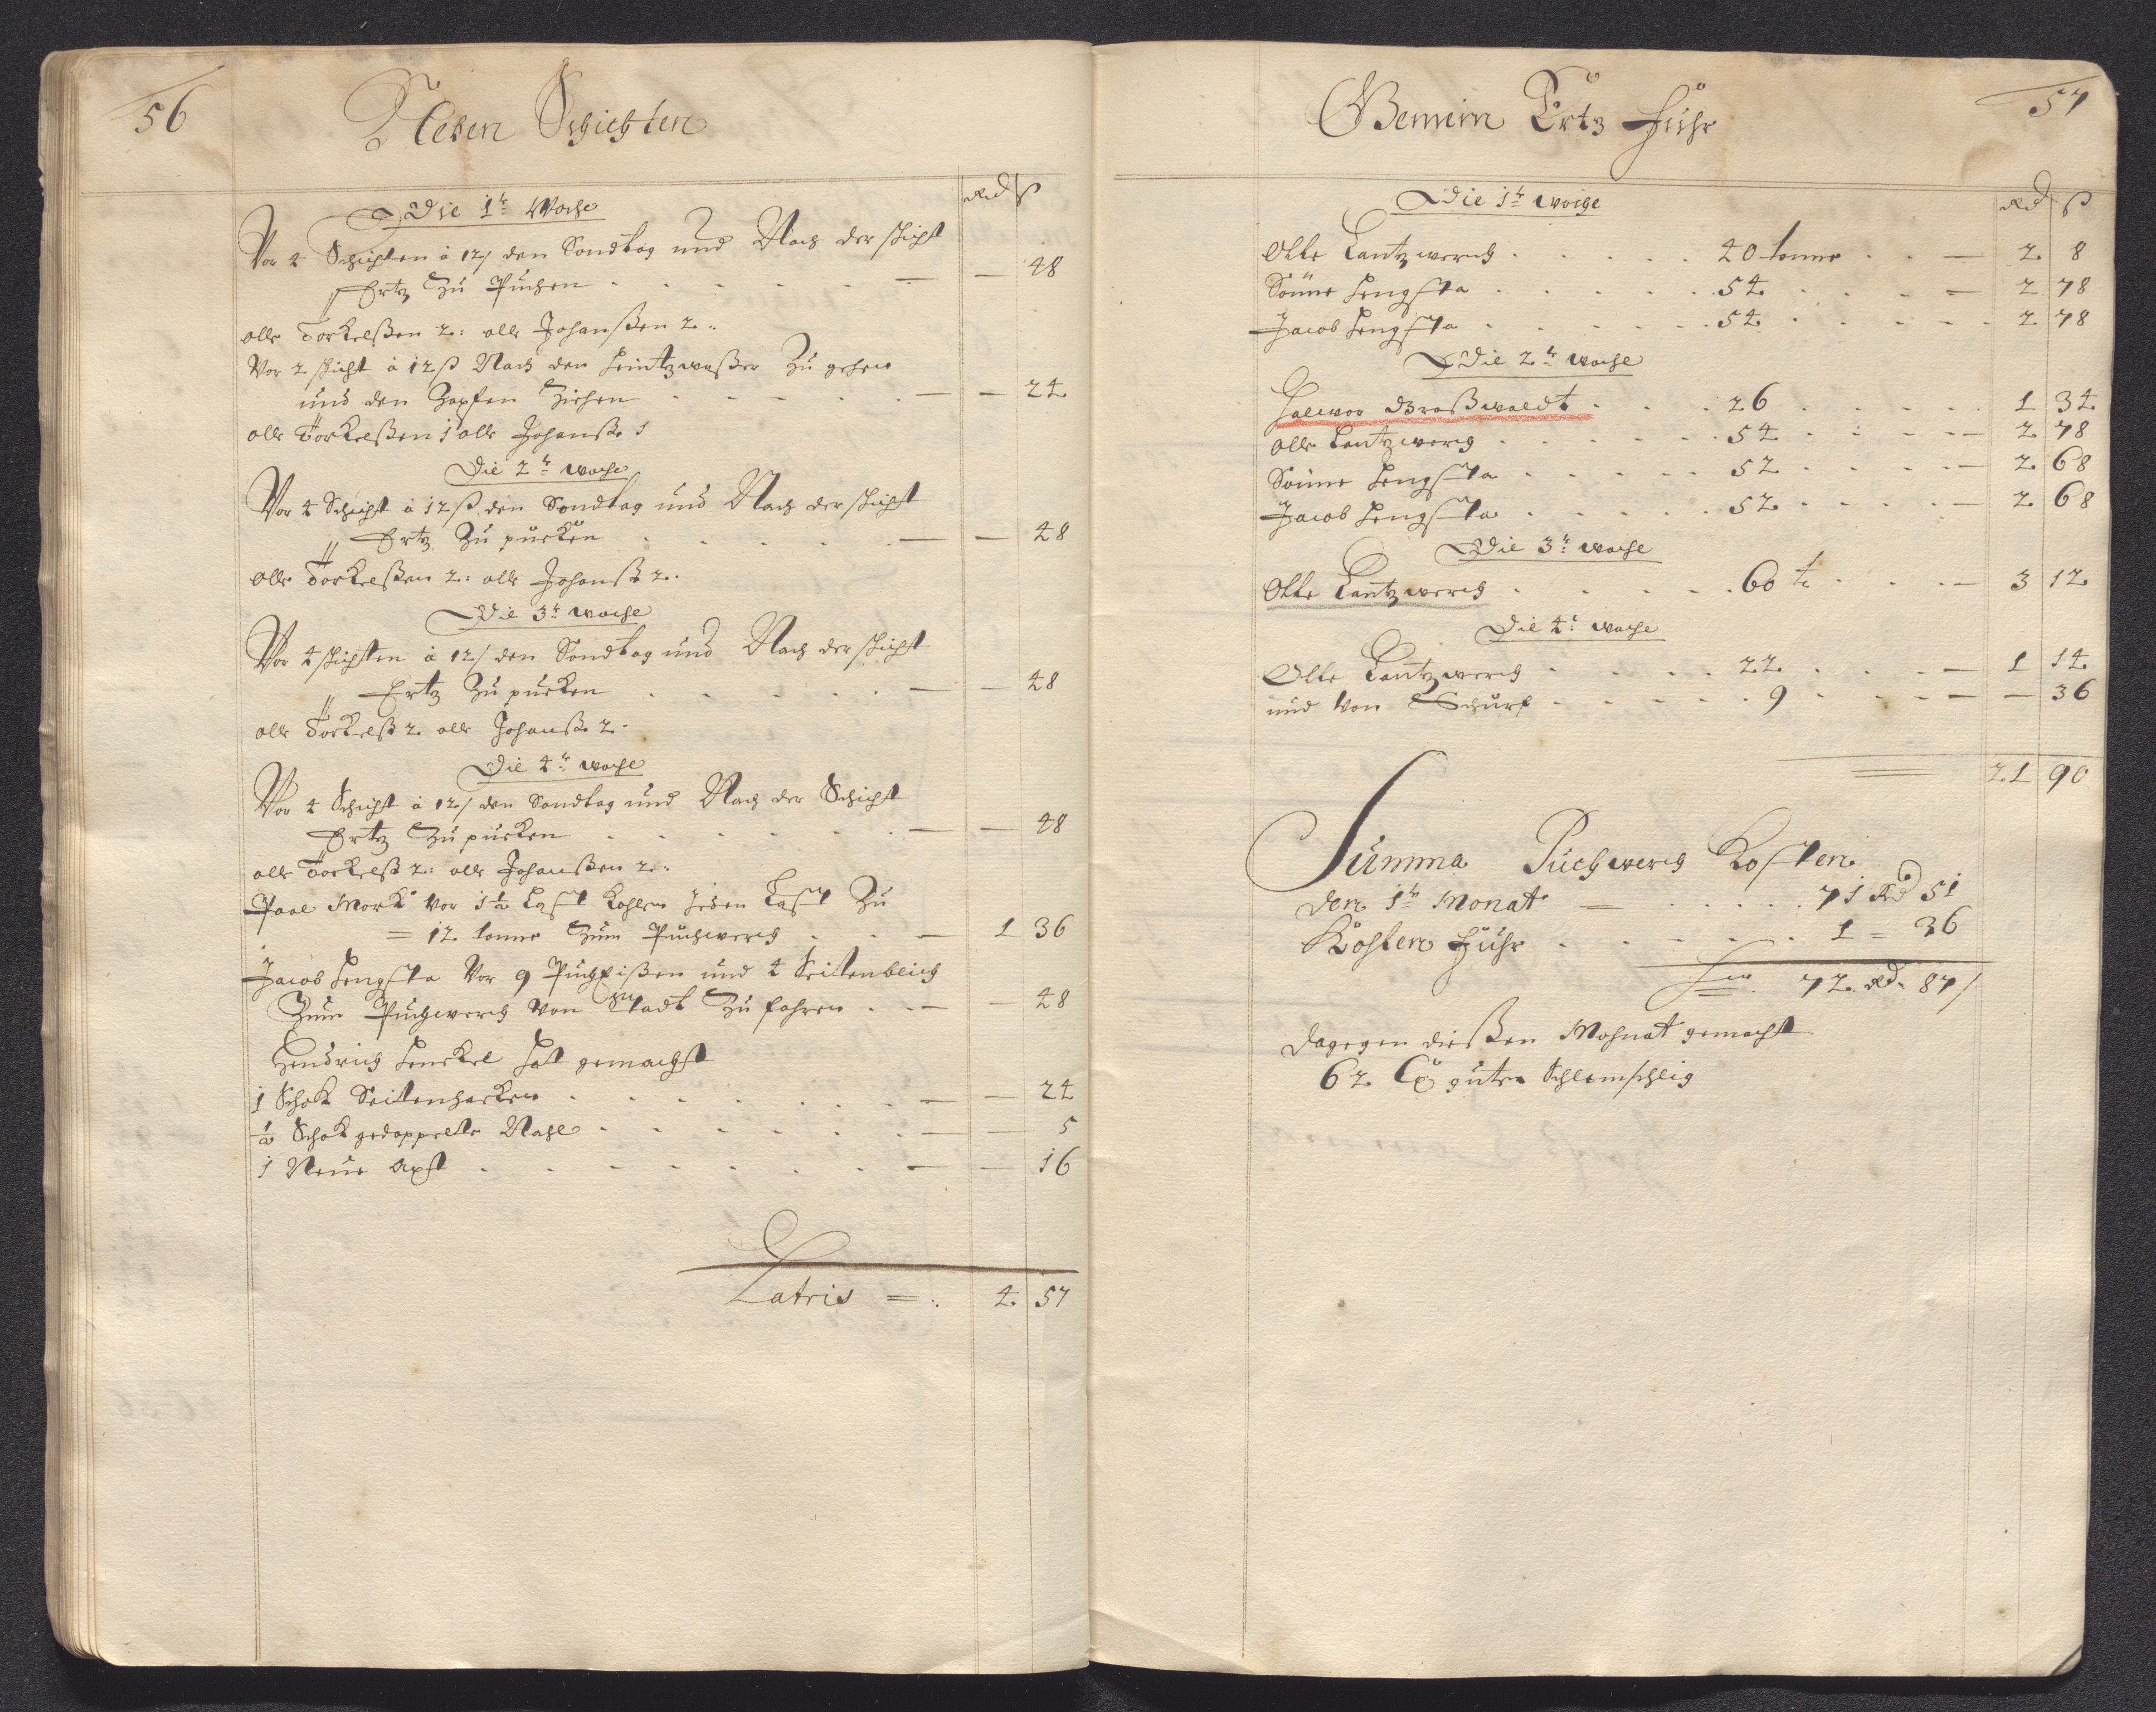 56
Neben Schichten
Rd ß
Die 1te Woche
Vor 4 Schichten à 12ß den Sondtag und Nach der schicht
Ertz Zu Puchen - - 48
olle Torkelßen 2: olle Johanßen 2.
Vor 2 schicht à 12ß Nach den Heintzwaßer Zu gehen
und den Zapfen Ziehen - - 24
olle Torkelßen 1 olle Johanß 1
Die 2te woche
Vor 4 Schicht à 12ß den Sondtag und Nach der schicht
Ertz Zu pucken - - 48
olle Torkelßen 2: olle Johanß 2.
Die 3te woche
Vor 4 schichten à 12ß den Sondtag und Nach der schicht
Ertz Zu pucken - - 48
olle Torkelß 2. olle Johanß 2.
Die 4te woche
Vor 4 Schicht à 12ß den Sondtag und Nach der Schicht
Ertz Zu pucken - - 48
olle Torkelß 2: olle Johanßen 2.
Paal Mork Vor 1½ Last Kohlen jeden Last Zu
= 12 tonne Zum Puchwerch - 1 36
Jacob Hengsta Vor 9 und 4 Seitenblech
Zum Puchwerch Von Stadt Zu fahren - - 48
Hendrich Henckel hat gemacht
1 Schok Seitenhacken - - 24
½ Schok gedoppelte Nagl - - 5
1 Neue Axst - - 16
Latris = 4 57
57
Gemein Ertz Fuhr
Rd ß
Die 1te woche
Olle Lantzwerch 40 tonne - 2 8
Sönne Hengsta 54 - 2 78
Jacob Hengsta 54 - 2 78
Die 2te woche
Halwor Graßwaldt 26 1 34
olle Lantzwerch 54 - 2 78
Sönne Hengsta 52 - 2 68
Jacob Hengsta 52 - 2 68
Die 3te woche
Olle Lantzwerch 60 t - 3 12
Die 4te woche
Olle Lantzwerch 22 - 1 14
und Von Schurf 9 - - 36
21 90
Summa Puchwerch Kosten
den 1te Monat - 71 Rd 51
Kohlen Fuhr 1 = 36
72 Rd 87ß
dagegen dießen Mohnat gemacht
62 guten Schlemschlig